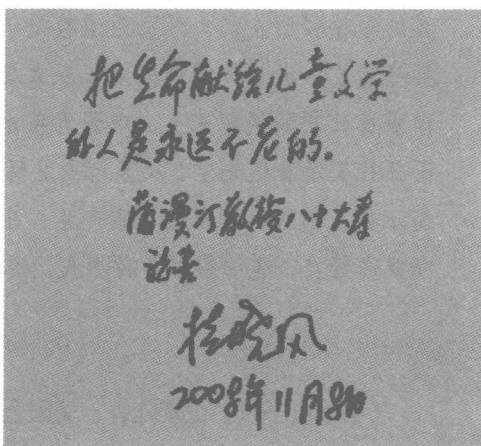 把生命献给儿童文学
的人是永远不老的。
蒲漫汀教授八十大寿
志喜
樊发稼
2008年11月8日